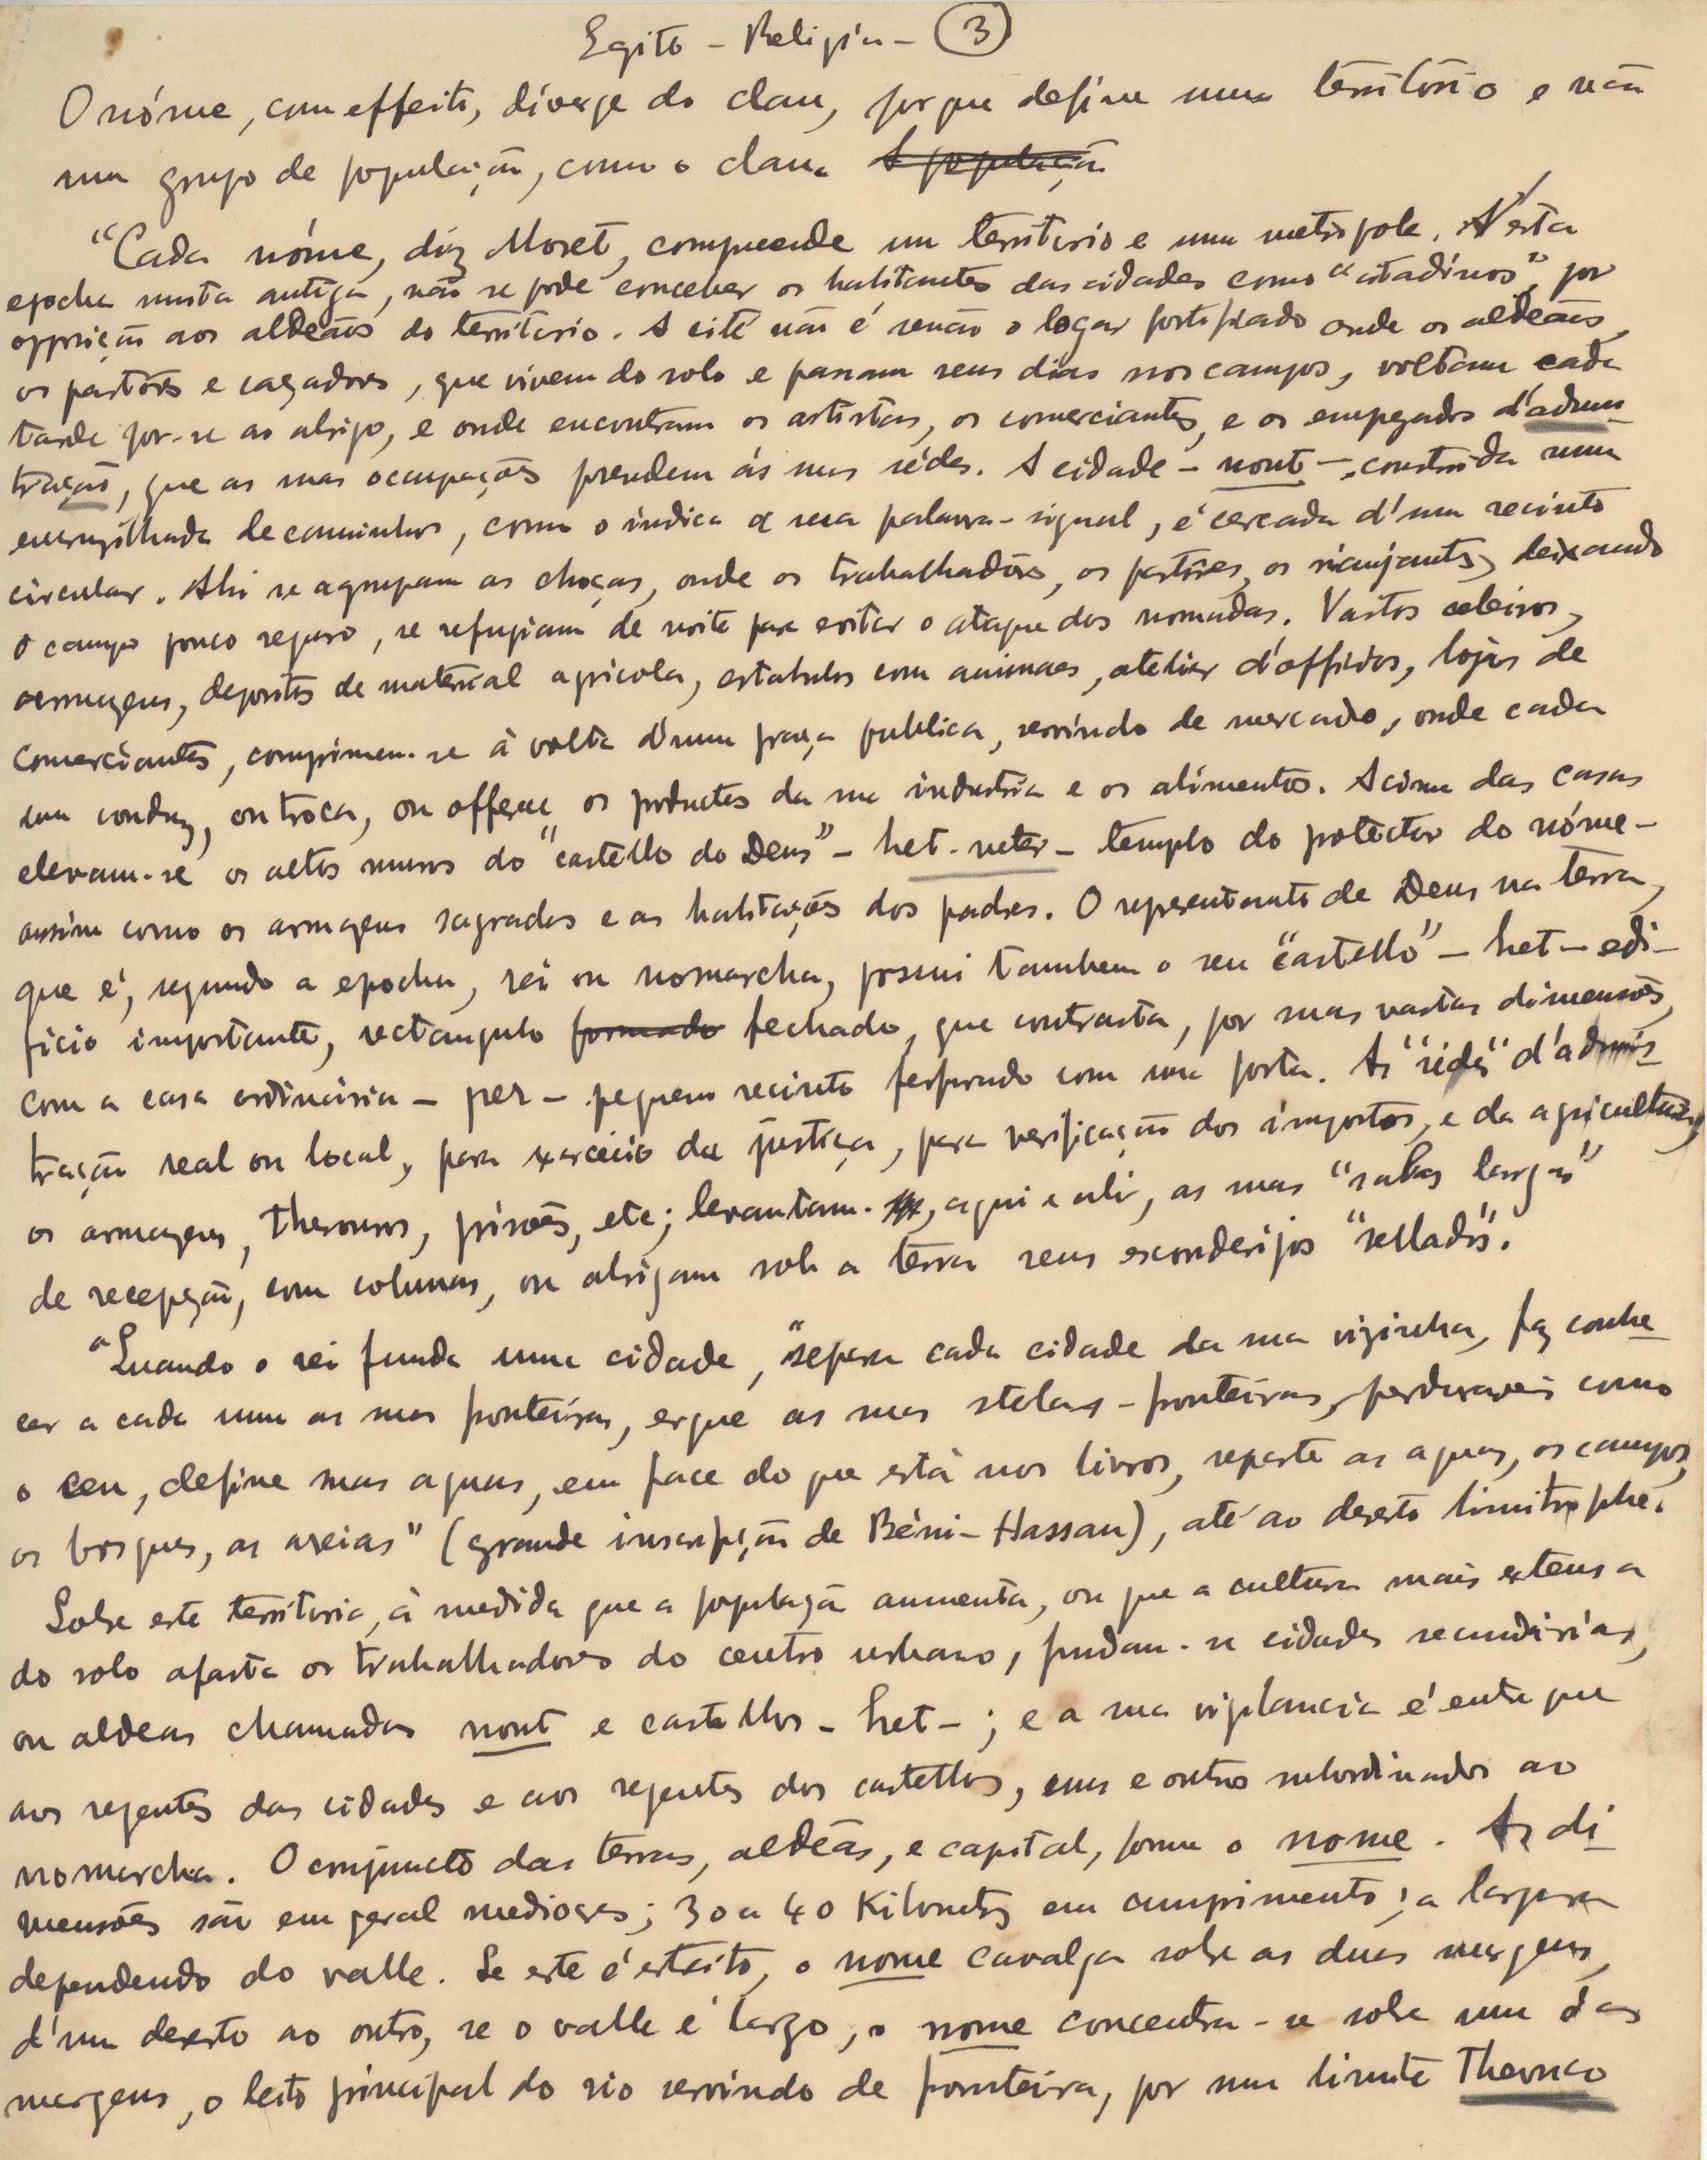 Egito - Religião - 3
O nóme, com effeito, diverge do clan, porque define um territorio e não
um grupo de população, como o clan. A população
"Cada nóme, diz Moret, comprende um territorio e uma metropole. N'esta
epocha muito antiga, não se pode conceber os habitantes das cidades como "citadinos", por
opposição aos aldeãos do territorio. A cité não é senão o logar fortificado onde os aldeãos,
os pastores e caçadores, que vivem do solo e passam seus dias nos campos, voltam cada
tarde pôr-se ao abrigo, e onde encontram os artistas, os comerciantes, e os empregados d'adminis
tração, que as suas ocupações prendem ás suas sédes. A cidade - nout -, construida numa
encruzilhada de caminhos, como o indica a sua palavra-signal, é cercada d'um recinto
circular. Ahi se agrupam as choças, onde os trabalhadores, os pastores, os viajantes, deixando
o campo pouco seguro, se refugiam de noite para evitar o ataque dos nomadas. Vastos celeiros,
armazens, depositos de material agricola, estabulos com animaes, atelier d'officios, lojas de
comerciantes, comprimem-se á volta d'uma praça publica, servindo de mercado, onde cada
um conduz, ou troca, ou offerece os productos da sua industria e os alimentos. Acima das casas
elevam-se os altos muros do "castello do Deus" - het-neter - templo do protector do nóme -
assim como os armazens sagrados e as habitações dos padres. O representante de Deus na terra,
que é, segundo a epocha, rei ou nomarcha, possui tambem o seu "castello" - het - edi-
ficio importante, rectangulo formado fechado, que contrasta, por suas vastas dimensões,
com a casa ordinaria - per - pequeno recinto perfurado com uma porta. As "sédes" d'adminis
tração real ou local, para exercicio da justiça, para verificação dos impostos, e da agricultura,
os armazens, thesouros, prisões, etc; levantam-se, aqui e ali, as suas "salas largas"
de recepção, com colunas, ou abrigam sob a terra seus esconderijos "sellados".
"Quando o rei funda uma cidade, "separa cada cidade da sua vizinha, faz conhe
cer a cada uma as suas fronteiras, ergue as suas stelas-fronteiras, perduraveis como
o ceu, define suas aguas, em face do que está nos livros, reparte as aguas, os campos,
os bosques, as areias" (grande inscripção de Béni-Hassan), até ao deserto limitrophe.
Sobre este territorio, á medida que a população aumenta, ou que a cultura mais extensa
do solo afasta os trabalhadores do centro urbano, fundam-se cidades secundárias,
ou aldeas chamadas nout e castellos - het -; e a sua vigilancia é entregue
aos regentes das cidades e aos regentes dos castellos, uns e outros subordinados ao
nomarcha. O conjuncto das terras, aldeãs, e capital, forma o nome. As di
mensões são em geral mediocres; 30 a 40 Kilometros em cumprimento; a largura
dependendo do valle. Se este é estreito, o nome cavalga sobre as duas margens,
d'um deserto ao outro, se o valle é largo, o nome concentra-se sobre uma das
margens, o leito principal do rio servindo de fronteira, por um limite